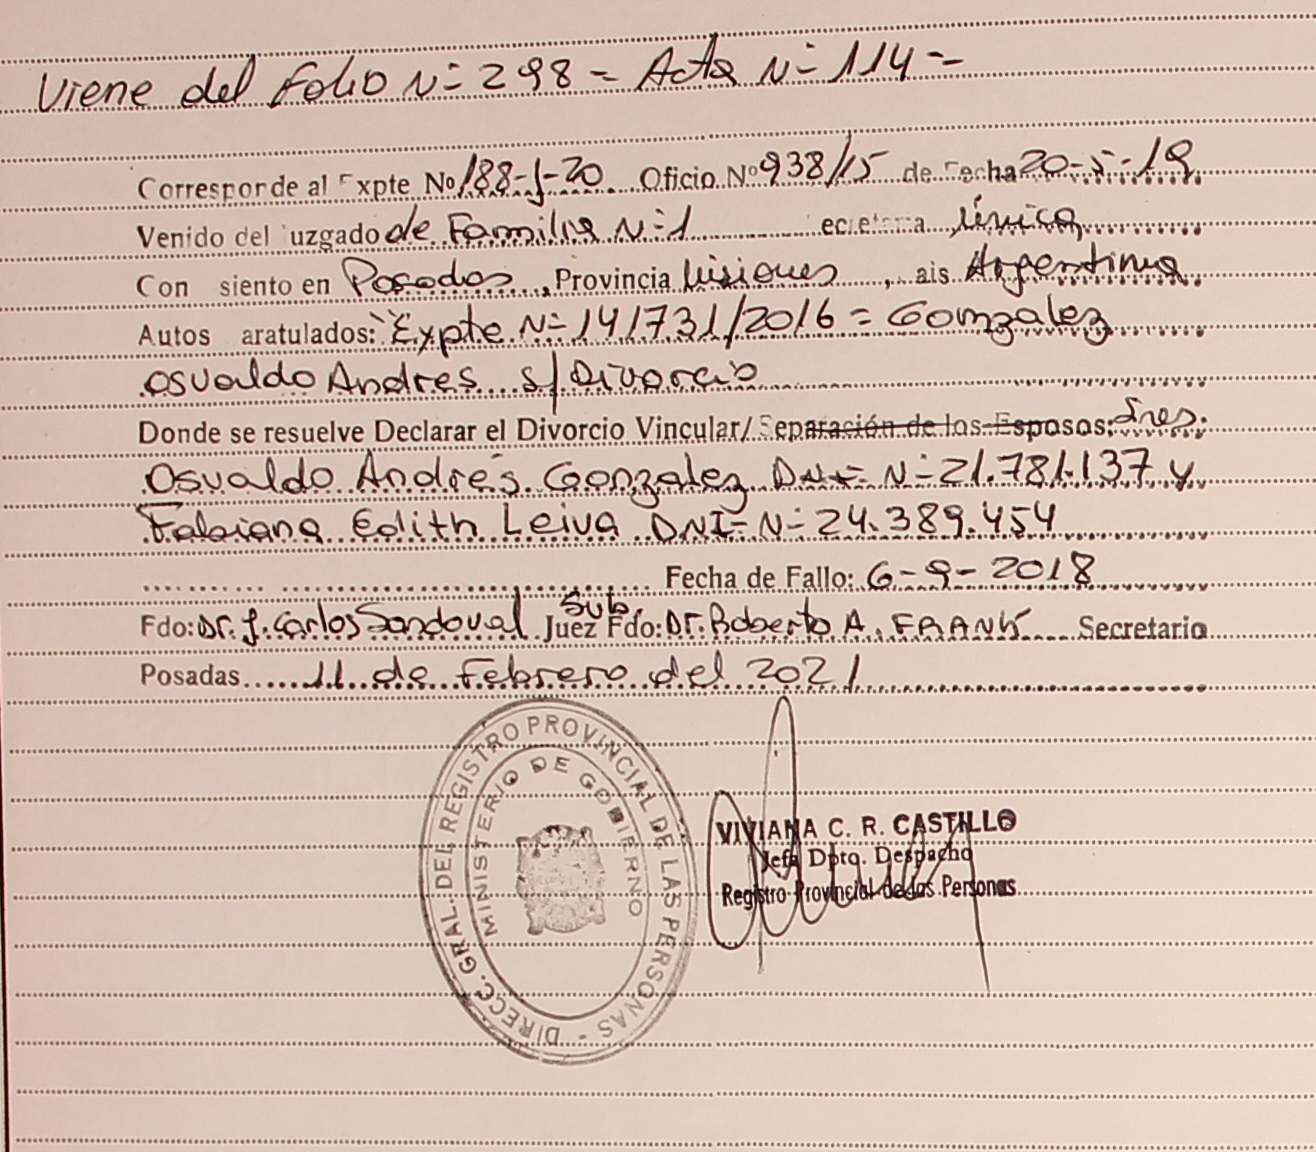 Viene del Folio N= 298 - Acta N= 114 -
Corresponde al Expte Nº 188-J-20 Oficio Nº 938/15 de Fecha 20-5-19
Venido del uzgado de Familia N=1 ecretaria única
Con siento en Posadas, Provincia Misiones, ais Argentina
Autos aratulados: "Expte N= 141731/2016 = Gonzalez
Osvaldo Andres s/Divorcio
Donde se resuelve Declarar el Divorcio Vincular/ Separación de los Esposos: Sres.
Osvaldo Andrés Gonzalez DNI- N= 21.781.137 y
Fabiana Edith Leiva DNI- N= 24.389.454
Fecha de Fallo: 6-9-2018
Fdo: Dr. J. Carlos Sandoval Juez Sub. Fdo: Dr. Roberto A. FRANK Secretario
Posadas 11 de Febrero del 2021
DIRECC. GRAL. DEL REGISTRO PROVINCIAL DE LAS PERSONAS -
MINISTERIO DE GOBIERNO
VIVIANA C. R. CASTILLO
Jefa Dpto. Despacho
Registro Provincial de las Personas